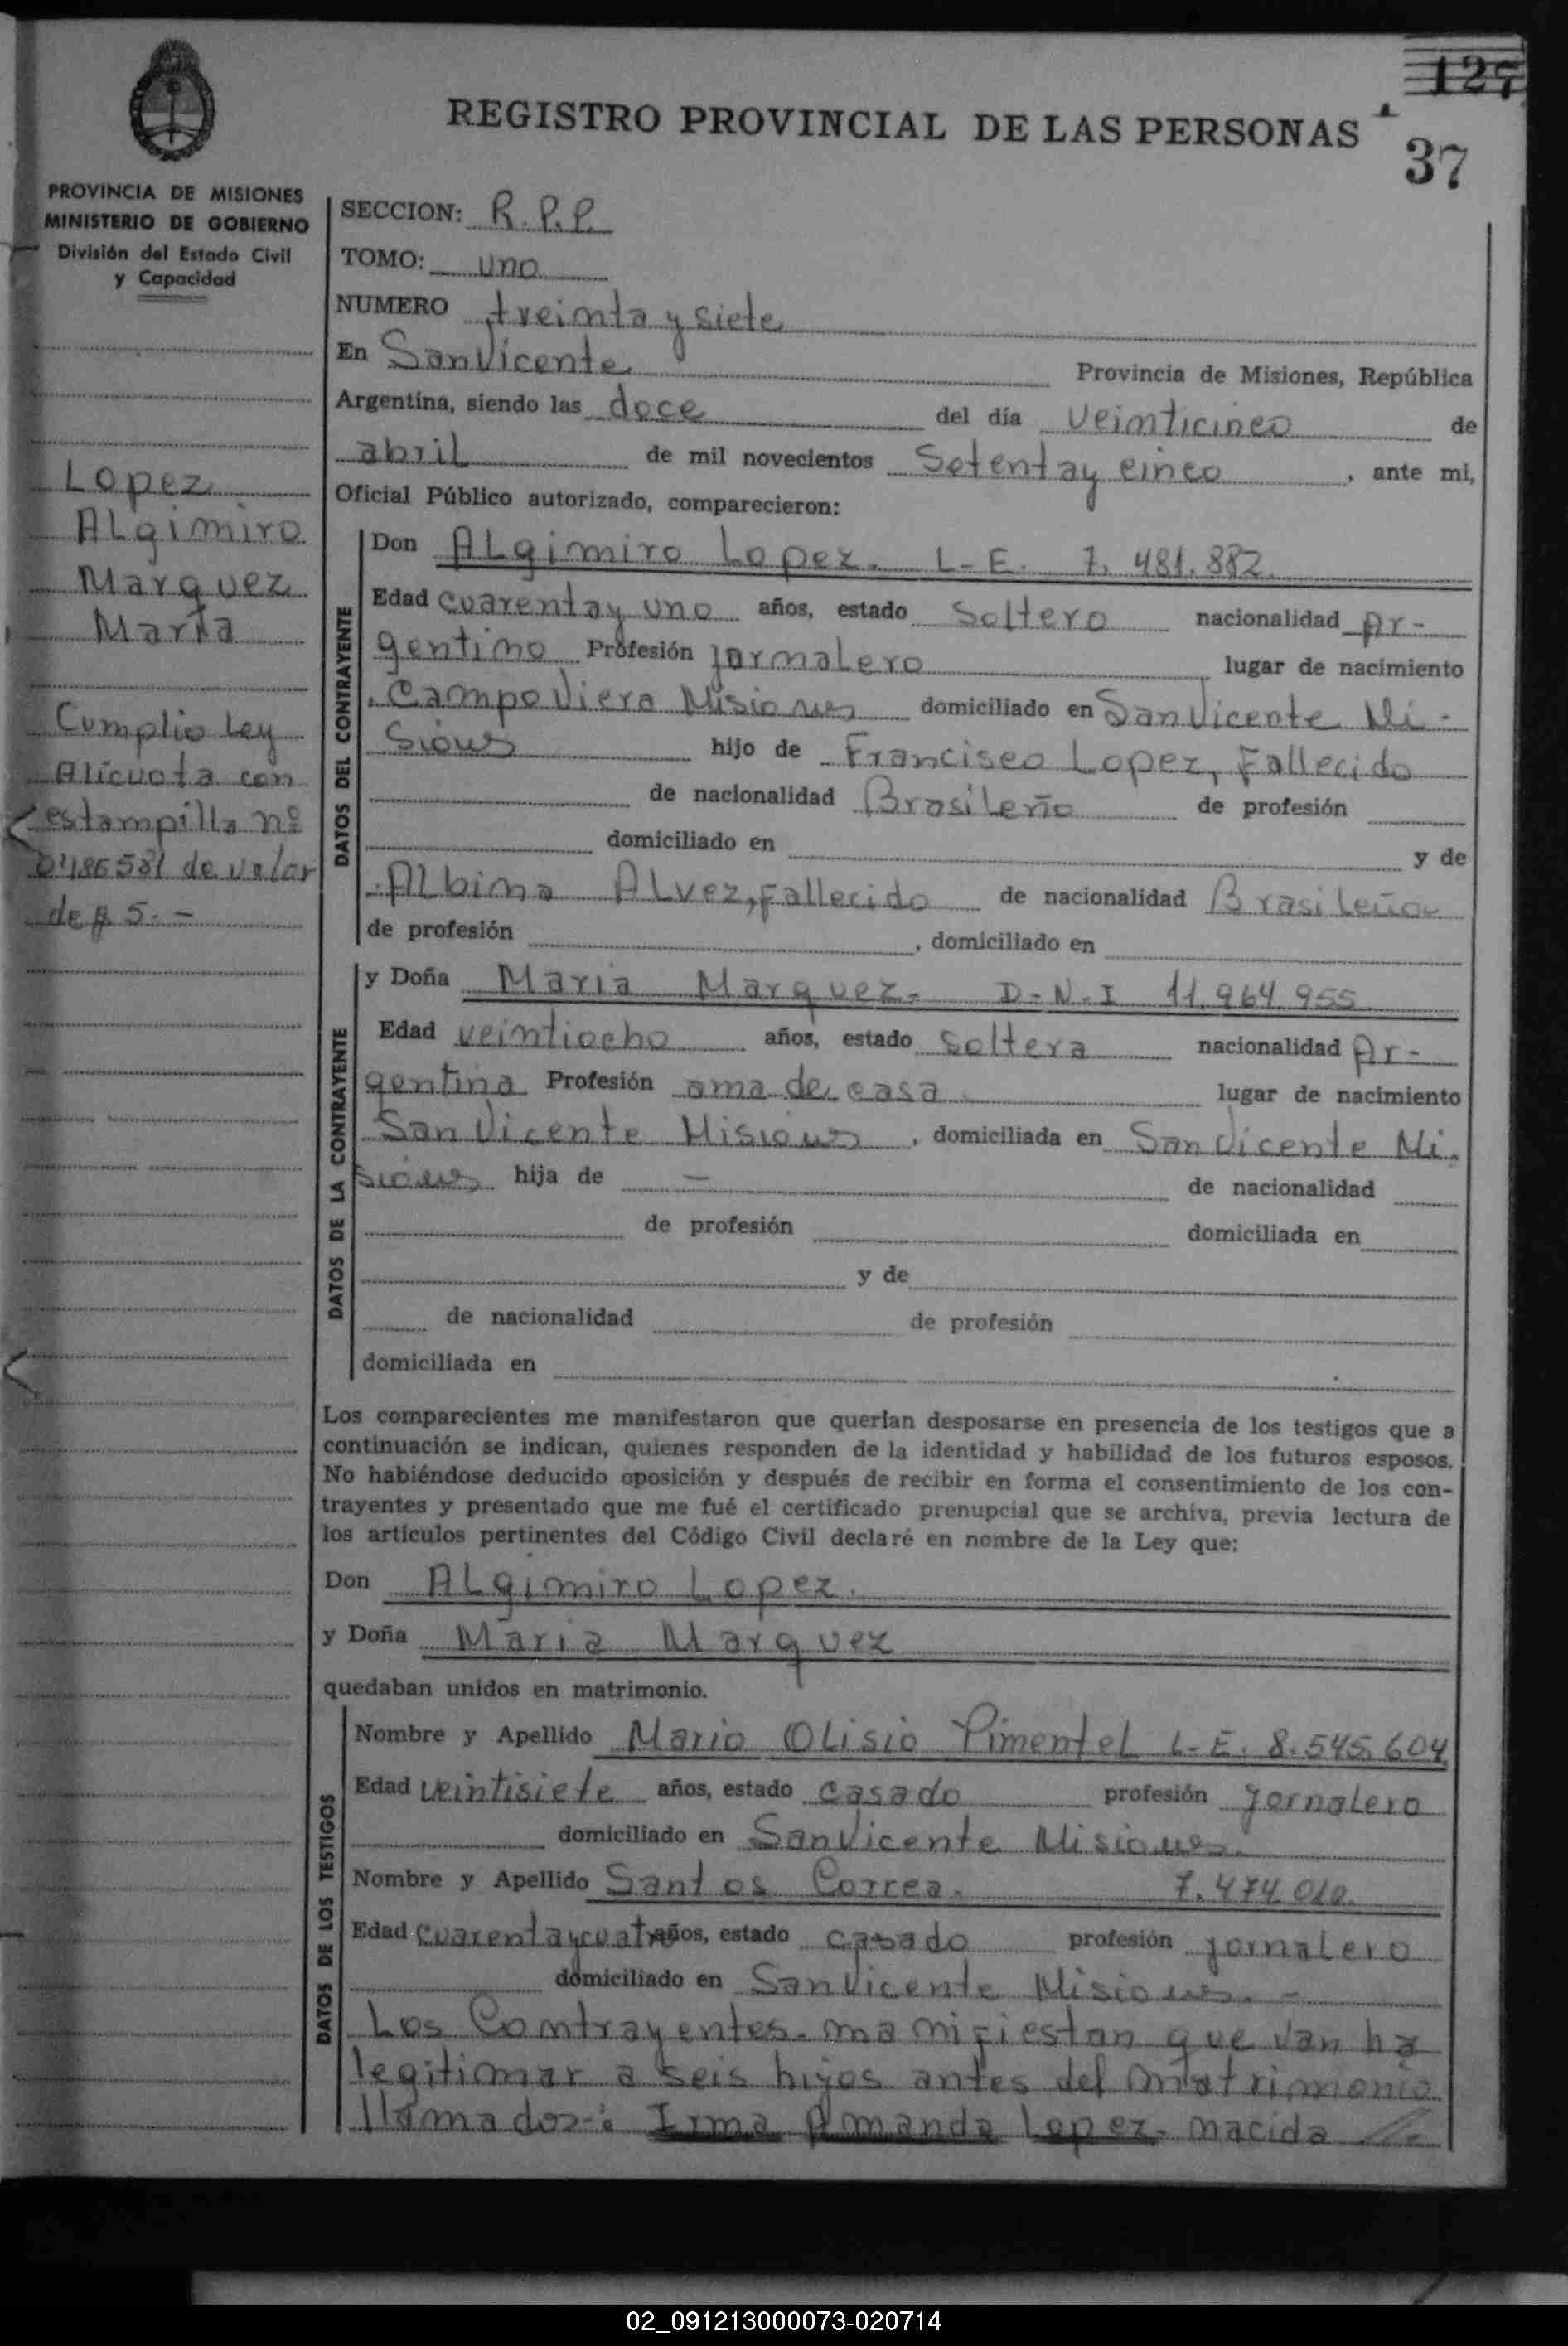 127
REGISTRO PROVINCIAL DE LAS PERSONAS
37
PROVINCIA DE MISIONES
MINISTERIO DE GOBIERNO
División del Estado Civil
y Capacidad
Lopez
ALgimiro
Marquez
Maria
Cumplio Ley
Alicuota con
estampilla nº
de valor
de $ 5.-
SECCION: R.P.P.
TOMO: uno
NUMERO treinta y siete
En San Vicente Provincia de Misiones, República
Argentina, siendo las doce del día veinticinco de
abril de mil novecientos Setenta y cinco, ante mi,
Oficial Público autorizado, comparecieron:
DATOS DEL CONTRAYENTE
Don ALgimiro Lopez. L-E. 7.481.882
Edad cuarenta y uno años, estado Soltero nacionalidad Ar-
gentino Profesión jornalero lugar de nacimiento
Campo Viera Misiones domiciliado en San Vicente Mi-
siones hijo de Francisco Lopez, Fallecido
de nacionalidad Brasileño de profesión
domiciliado en y de
Albina Alvez, Fallecido de nacionalidad Brasileña
de profesión , domiciliado en
DATOS DE LA CONTRAYENTE
y Doña Maria Marquez- D-N.I 11.964.955
Edad veintiocho años, estado soltera nacionalidad Ar-
gentina Profesión ama de casa lugar de nacimiento
San Vicente Misiones, domiciliada en San Vicente Mi-
siones hija de — de nacionalidad
de profesión domiciliada en
y de
de nacionalidad de profesión
domiciliada en
Los comparecientes me manifestaron que querían desposarse en presencia de los testigos que a
continuación se indican, quienes responden de la identidad y habilidad de los futuros esposos.
No habiéndose deducido oposición y después de recibir en forma el consentimiento de los con-
trayentes y presentado que me fué el certificado prenupcial que se archiva, previa lectura de
los artículos pertinentes del Código Civil declaré en nombre de la Ley que:
Don ALgimiro Lopez.
y Doña Maria Marquez
quedaban unidos en matrimonio.
DATOS DE LOS TESTIGOS
Nombre y Apellido Mario Olisio Pimentel L-E. 8.545.604
Edad veintisiete años, estado casado profesión Jornalero
domiciliado en San Vicente Misiones.
Nombre y Apellido Santos Correa. 7.474.010.
Edad cuarenta y cuatro años, estado casado profesión jornalero
domiciliado en San Vicente Misiones. -
Los Contrayentes manifiestan que van ha
legitimar a seis hijos antes del matrimonio
llamados: Irma Amanda Lopez- nacida
02_091213000073-020714